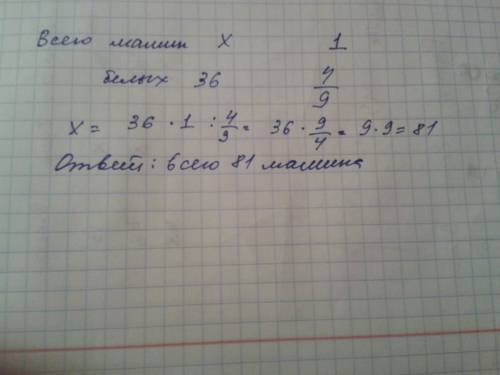 Всего машин x 1
белых 36 4/9
x = 36 · 1 : 4/9 = 36 · 9/4 = 9·9 = 81
Ответ: всего 81 машина